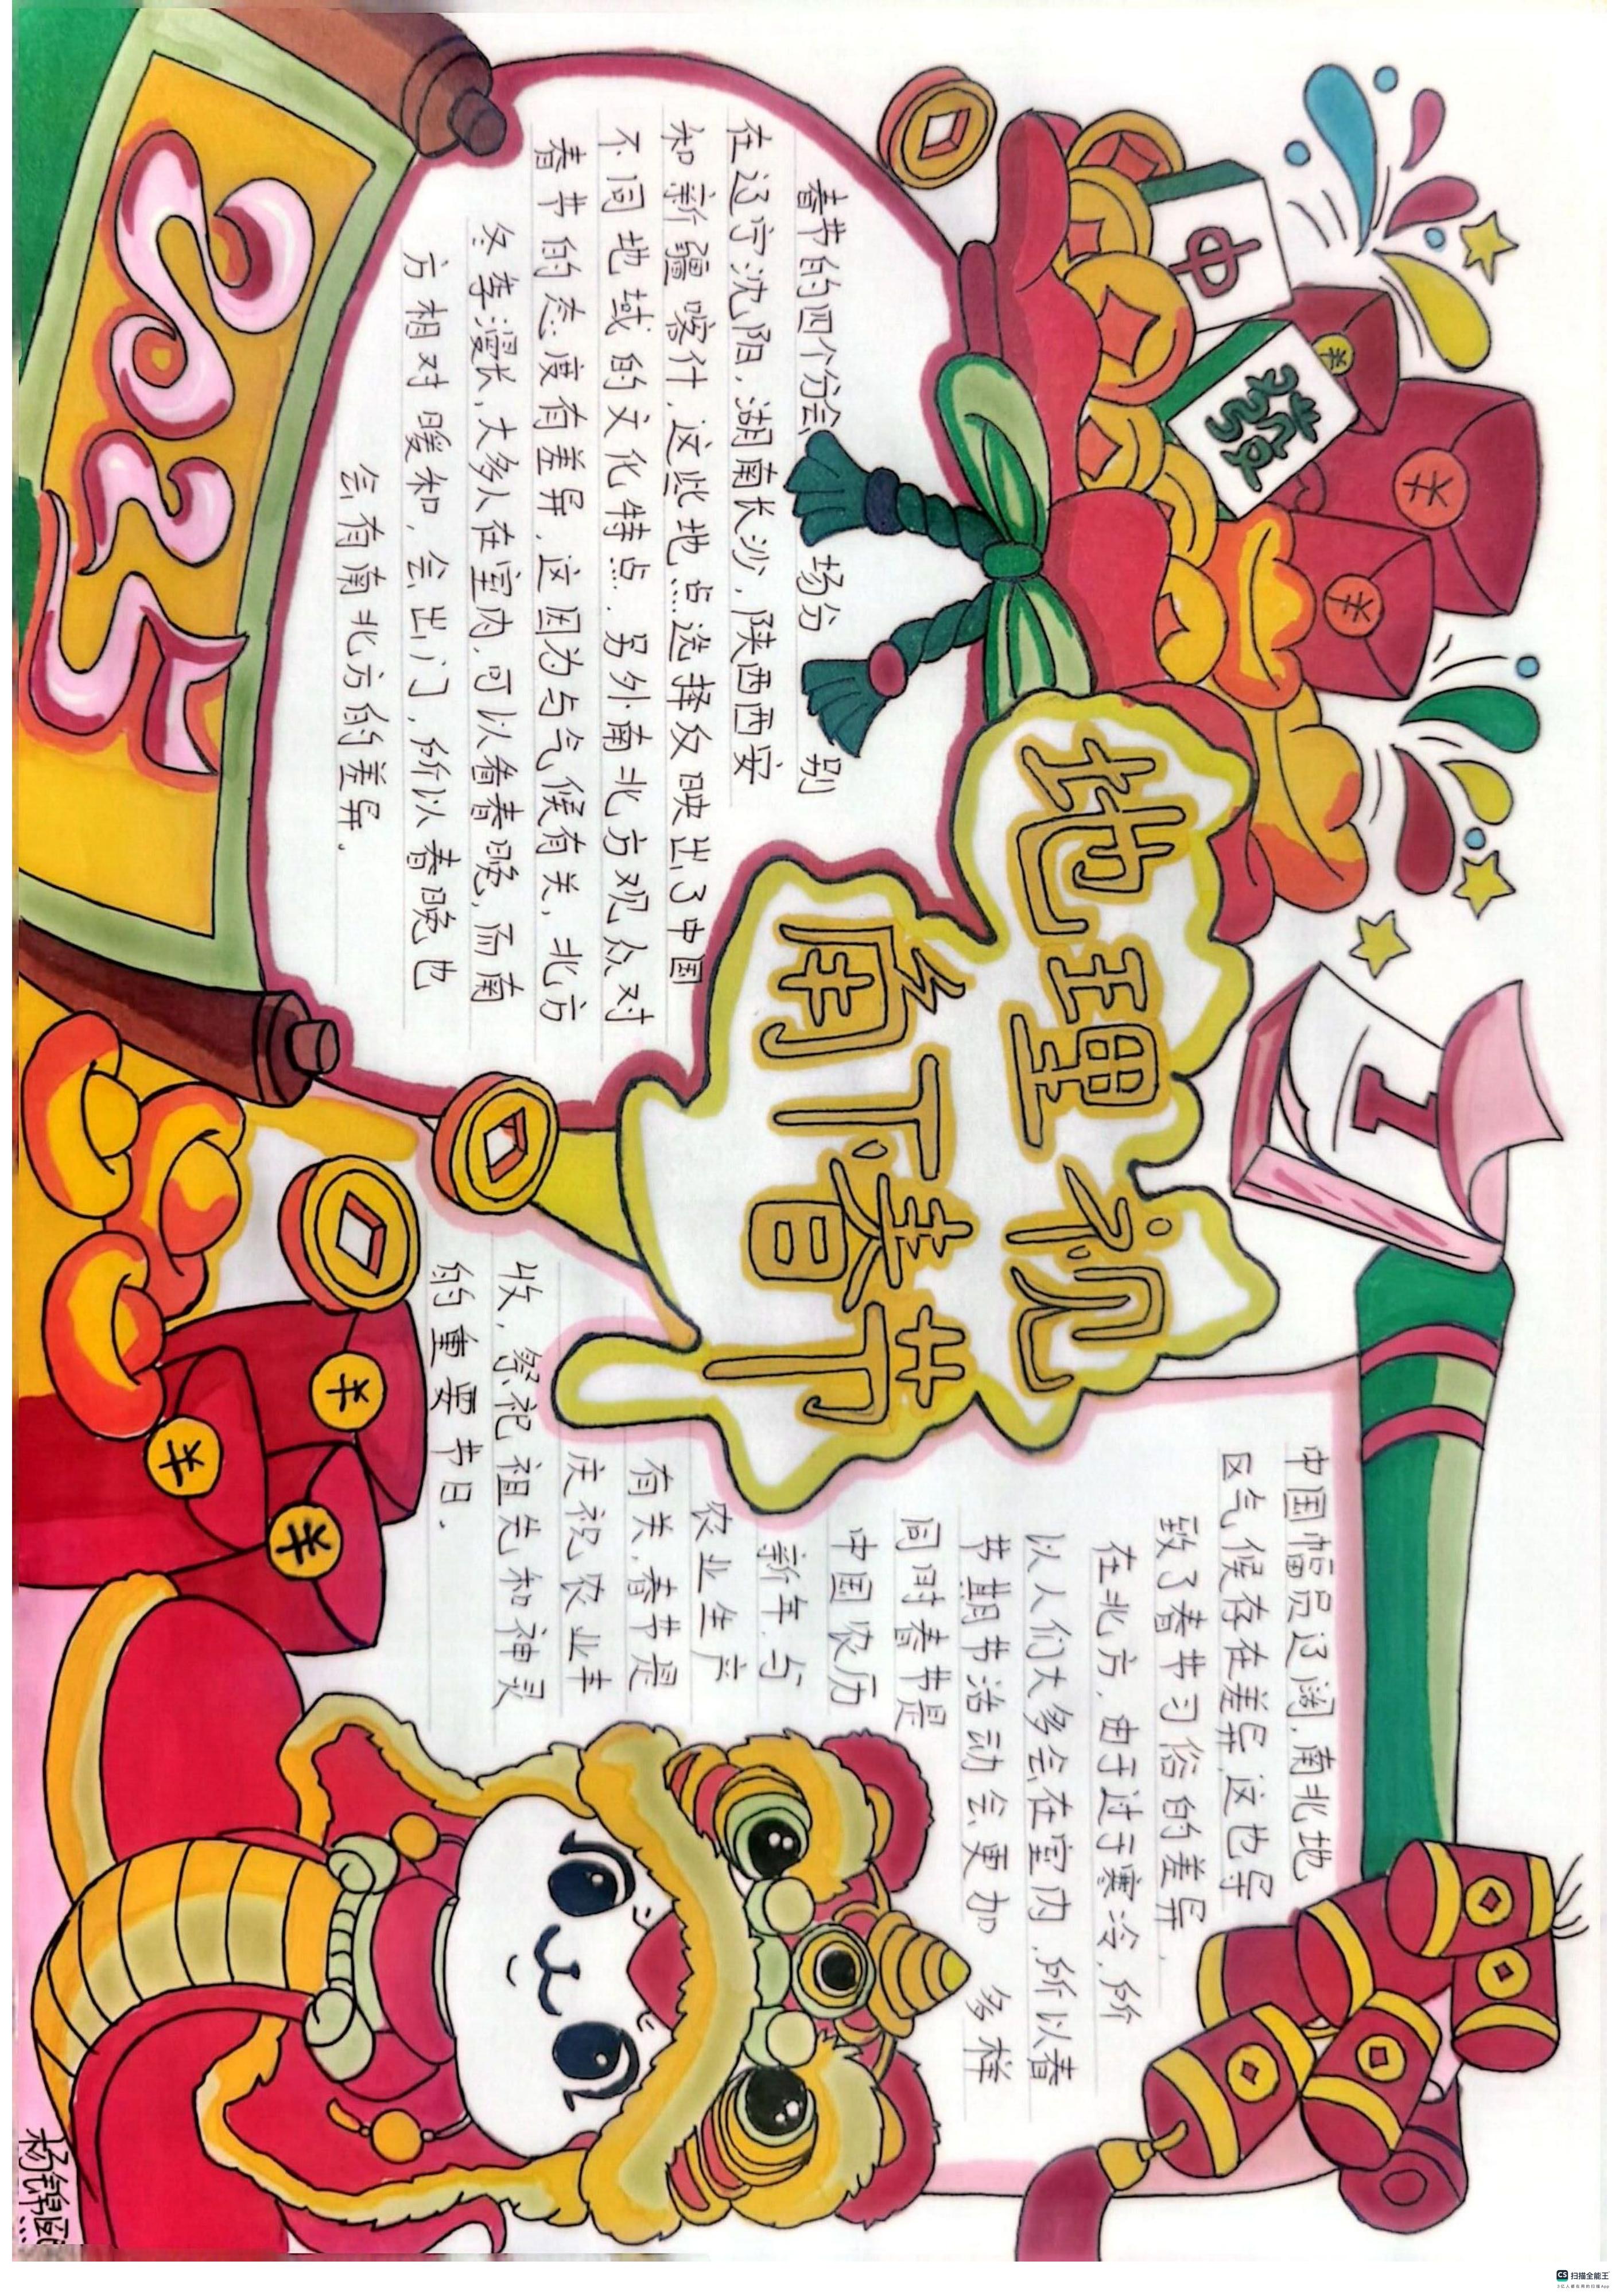 地理视
角下春节
春节的四个分会场分别
在辽宁沈阳，湖南长沙，陕西西安
和新疆喀什，这些地点选择反映出了中国
不同地域的文化特点．另外南北方观众对
春节的态度有差异，这因为与气候有关，北方
冬季漫长，大多人在室内，可以看春晚，而南
方相对暖和，会出门，所以春晚也
会有南北方的差异．
中国幅员辽阔，南北地
区气候存在差异，这也导
致了春节习俗的差异．
在北方，由于过于寒冷，所
以人们大多会在室内，所以春
节期节活动会更加多样
同时春节是
中国农历
新年，与
农业生产
有关，春节是
庆祝农业丰
收，祭祀祖先和神灵
的重要节日．
2025
中
發
1
CS 扫描全能王
3亿人都在用的扫描App